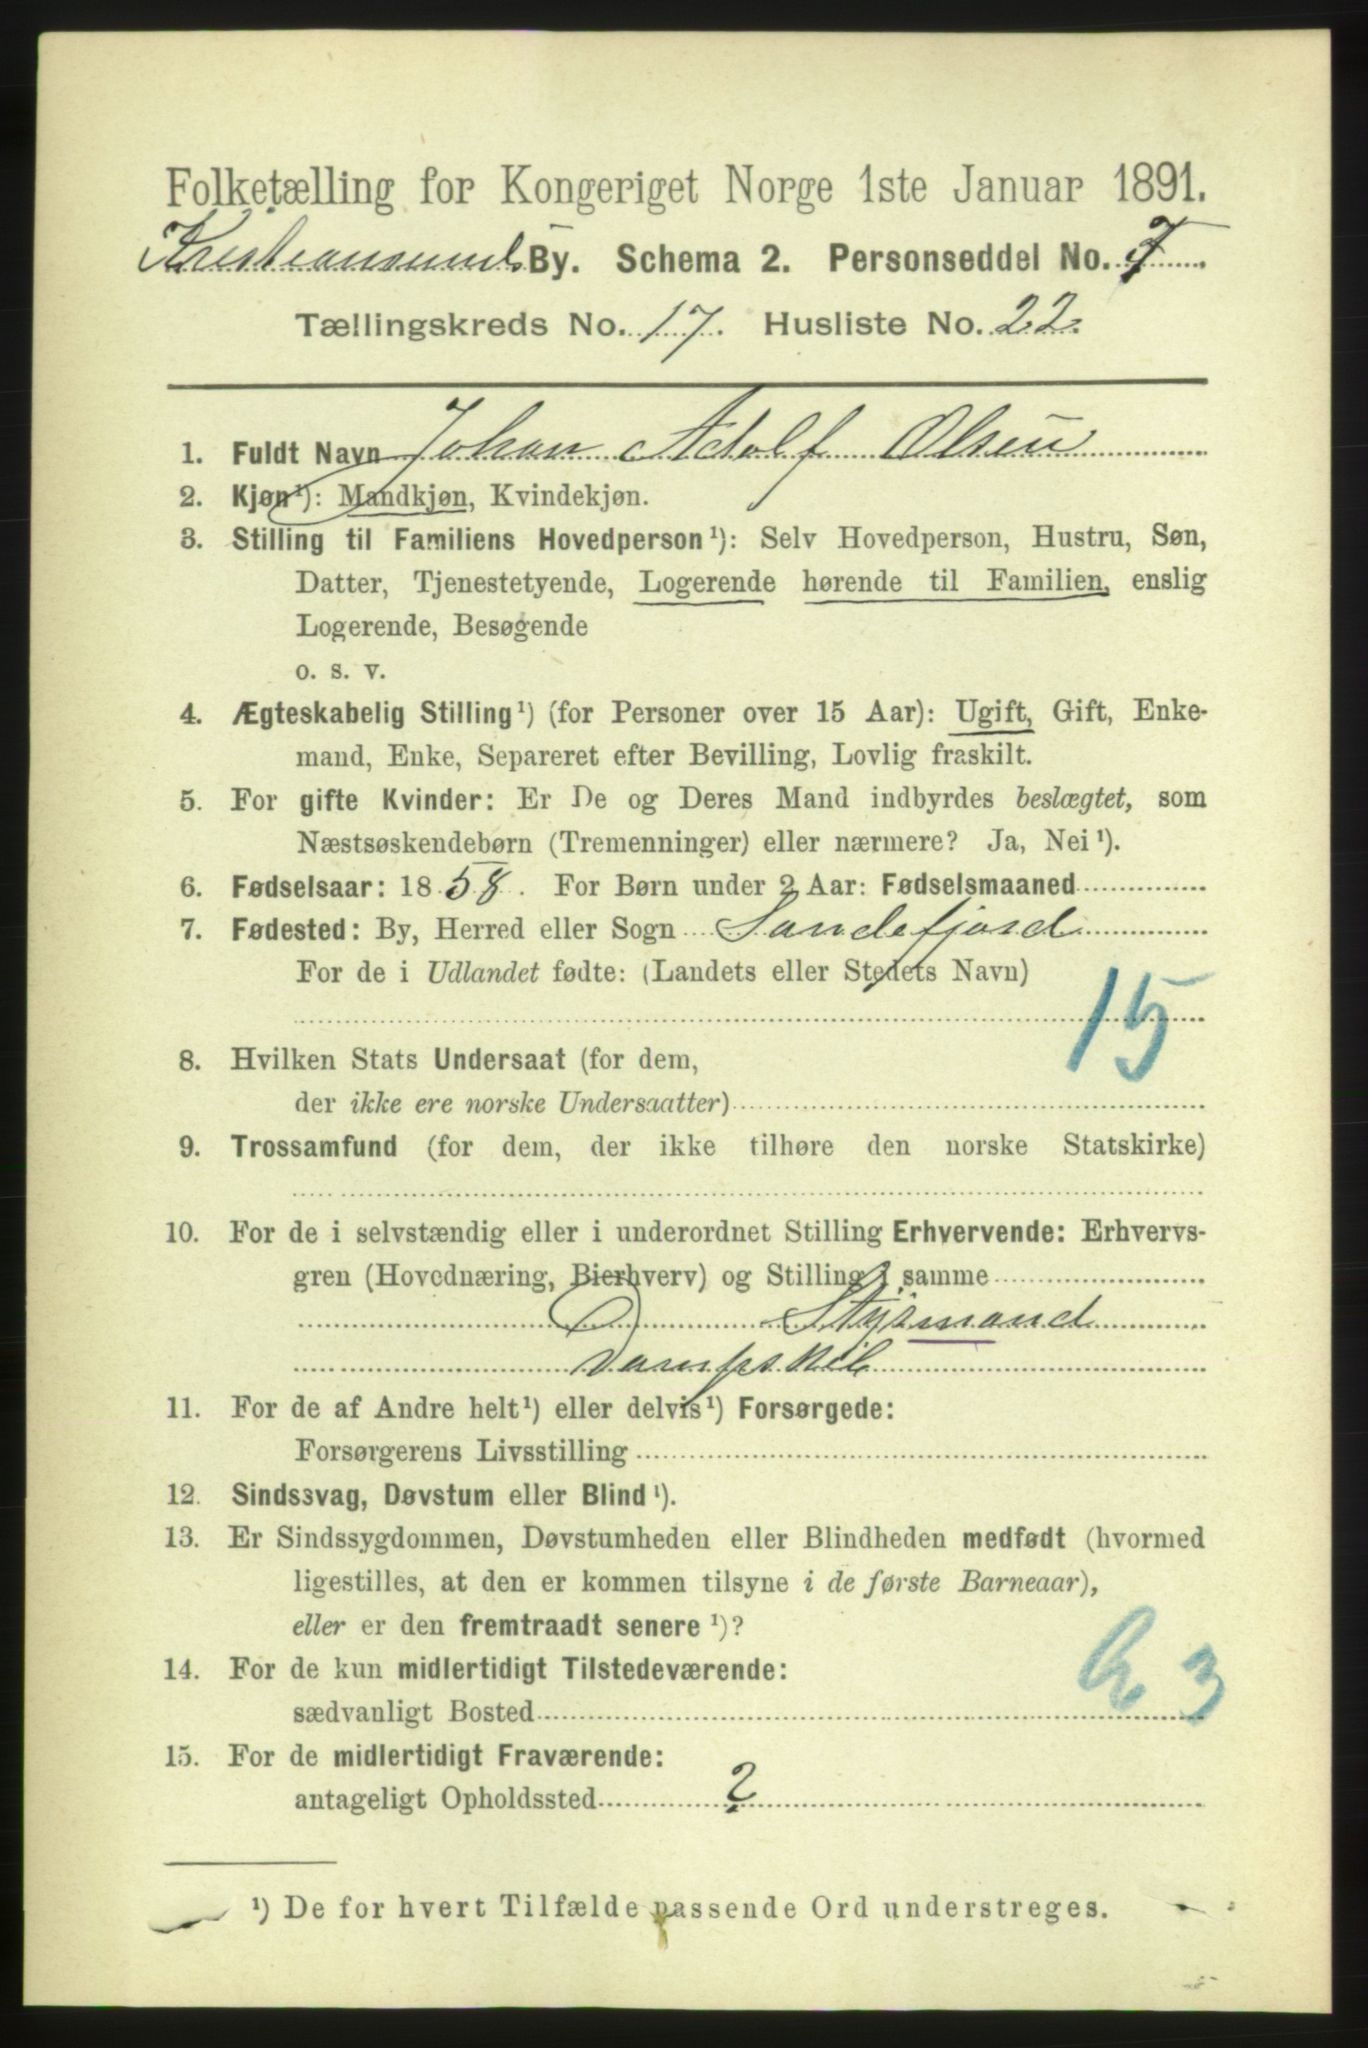 Folketælling for Kongeriget Norge 1ste Januar 1891.
Kristiansund By. Schema 2. Personseddel No. 7
Tællingskreds No. 17. Husliste No. 22.
1. Fuldt Navn Johan Adolf Olsen
2. Kjøn¹): Mandkjøn, Kvindekjøn.
3. Stilling til Familiens Hovedperson¹): Selv Hovedperson, Hustru, Søn,
Datter, Tjenestetyende, Logerende hørende til Familien, enslig
Logerende, Besøgende
o. s. v.
4. Ægteskabelig Stilling¹) (for Personer over 15 Aar): Ugift, Gift, Enke-
mand, Enke, Separeret efter Bevilling, Lovlig fraskilt.
5. For gifte Kvinder: Er De og Deres Mand indbyrdes beslægtet, som
Næstsøskendebørn (Tremenninger) eller nærmere? Ja, Nei¹).
6. Fødselsaar: 1858. For Børn under 2 Aar: Fødselsmaaned
7. Fødested: By, Herred eller Sogn Sandefjord
For de i Udlandet fødte: (Landets eller Stedets Navn)
15
8. Hvilken Stats Undersaat (for dem,
der ikke ere norske Undersaatter)
9. Trossamfund (for dem, der ikke tilhøre den norske Statskirke)
10. For de i selvstændig eller i underordnet Stilling Erhvervende: Erhvervs-
gren (Hovednæring, Bierhverv) og Stilling i samme
Styrmand
Dampskib
11. For de af Andre helt¹) eller delvis¹) Forsørgede:
Forsørgerens Livsstilling
12. Sindssvag, Døvstum eller Blind¹).
13. Er Sindssygdommen, Døvstumheden eller Blindheden medfødt (hvormed
ligestilles, at den er kommen tilsyne i de første Barneaar),
eller er den fremtraadt senere¹)?
14. For de kun midlertidigt Tilstedeværende:
sædvanligt Bosted
3
15. For de midlertidigt Fraværende:
antageligt Opholdssted ?
¹) De for hvert Tilfælde passende Ord understreges.